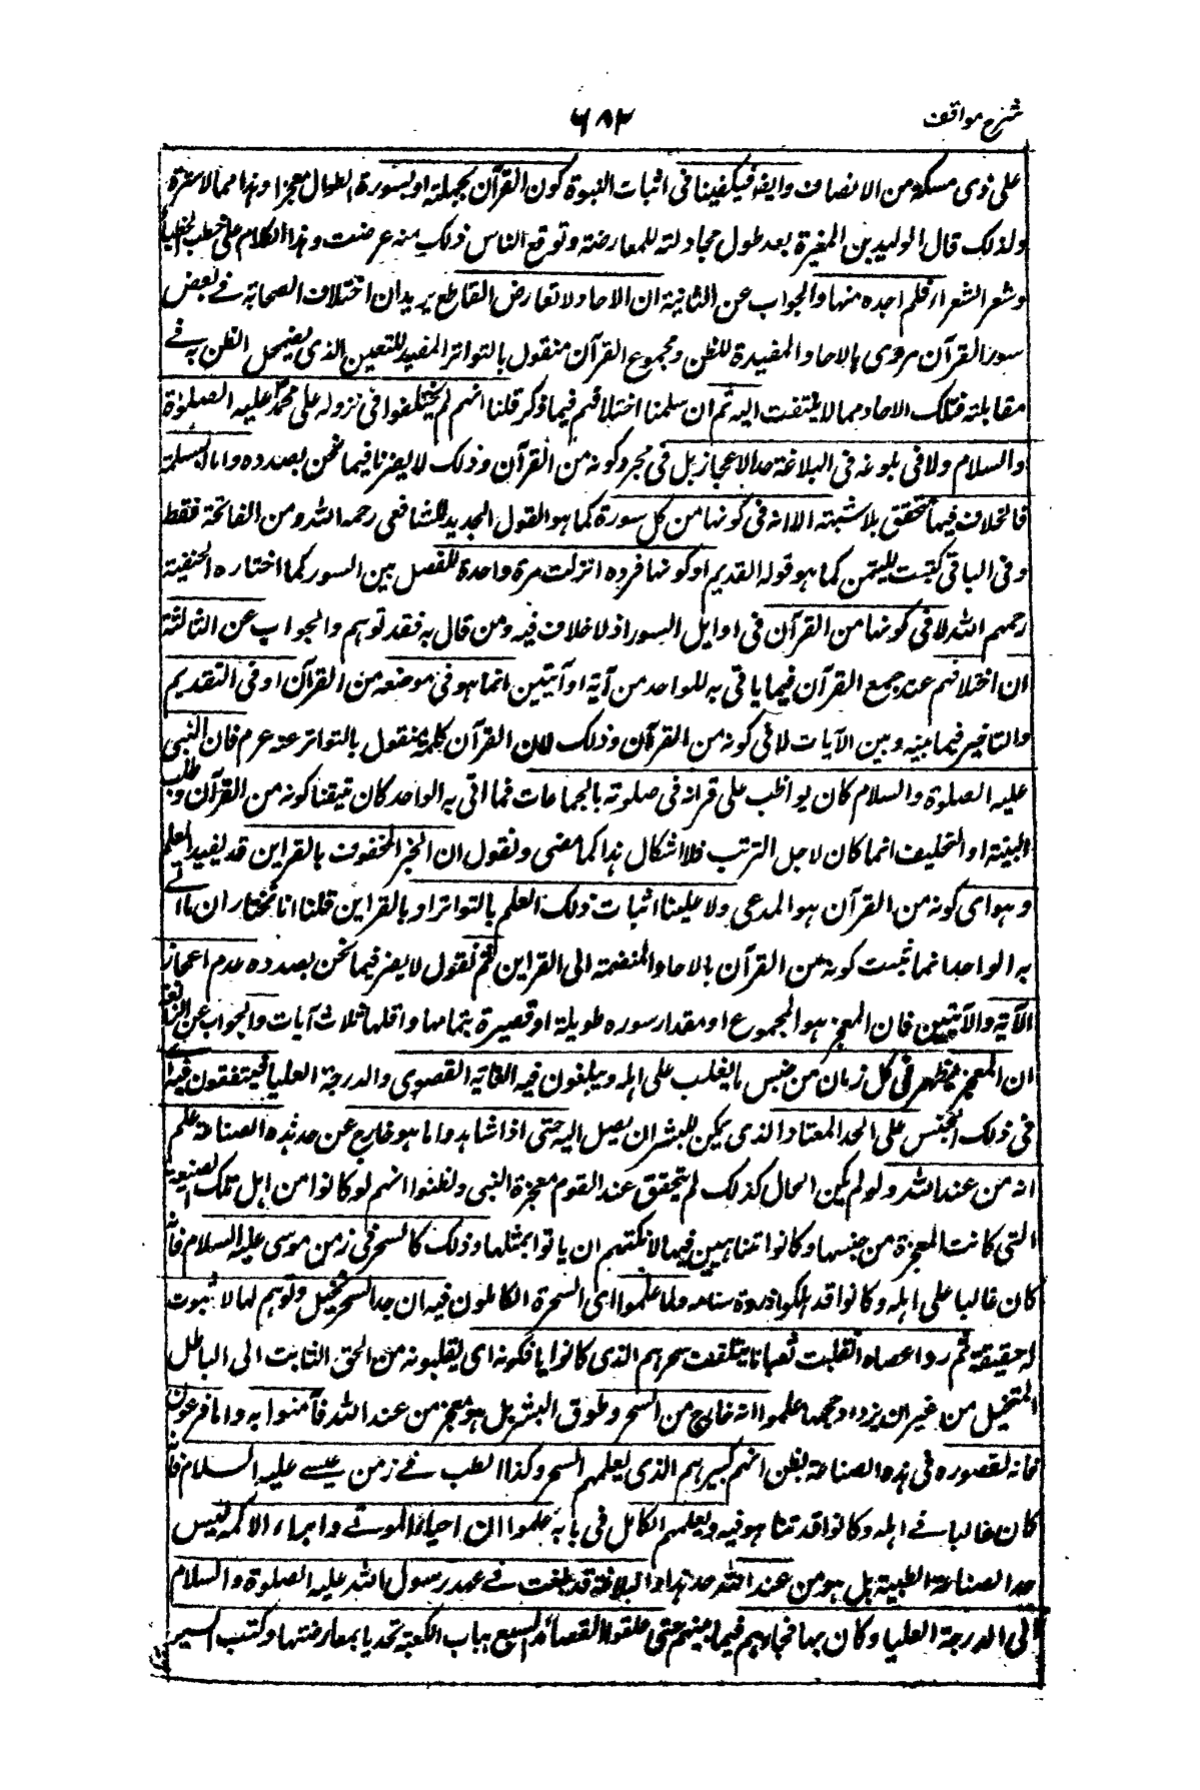 شرح مواقف
٦٨٢
على ذى مسكة من الانصاف وايضا فيكفينا فى اثبات النبوة كون القرآن بجملته او بسورة الطوال معجزا وهذا مما لا سترة
ولذلك قال الوليد بن المغيرة بعد طول مجادلته للمعارضة وتوقع الناس ذلك منه عرضت هذا الكلام على خطب الخطباء
وشعر الشعراء فلم اجده منها والجواب عن الثانية ان الآحاد لا تعارض القاطع يريد ان اختلاف الصحابة فى بعض
سور القرآن مروى بالآحاد المفيدة للظن ومجموع القرآن منقول بالتواتر المفيد لليقين الذى يضمحل الظن به فى
مقابلته فتلك الآحاد مما لا يلتفت اليه ثم ان سلمنا اختلافهم فيما ذكر قلنا انهم لم يختلفوا فى نزوله على محمد عليه الصلوة
والسلام ولا فى بلوغه فى البلاغة حد الاعجاز بل فى مجرد كونه من القرآن وذلك لا يضرنا فيما نحن بصدده واما البسملة
فالخلاف فيها تحقق بلا شبهة الا انه فى كونها من كل سورة كما هو القول الجديد للشافعى رحمه الله ومن الفاتحة فقط
وفى الباقى كتبت للتيمن كما هو قوله القديم او كونها فرده انزلت مرة واحدة للفصل بين السور كما اختاره الحنفية
رحمهم الله لا فى كونها من القرآن فى اوايل السور اذ لا خلاف فيه ومن قال به فقد توهم والجواب عن الثالثة
ان اختلافهم عند جمع القرآن فيما ياتى به للواحد من آية او آيتين انما هو فى موضعه من القرآن او فى التقديم
والتاخير فيما بينه وبين الآيات لا فى كونه من القرآن وذلك لان القرآن كله منقول بالتواتر عنه عرم فان النبى
عليه الصلوة والسلام كان يواظب على قرانه فى صلوته بالجماعات فما اتى به الواحد كان متيقنا كونه من القرآن وطلب
البينة او التحليف انما كان لاجل الترتب فلا اشكال هذا كما مضى ونقول ان الخبر المحفوف بالقراين قد يفيد العلم
وهو اى كونه من القرآن هو المدعى ولا علينا اثبات ذلك العلم بالتواتر او بالقراين قلنا انا نختار ان ما اتى
به الواحد انما ثبت كونه من القرآن بالآحاد المنضمة الى القراين ثم نقول لا يضر فيما نحن بصدده عدم اعجاز
الآية والآيتين فان المعجز هو المجموع او مقدار سوره طويلة او قصيرة بتمامها واقلها ثلاث آيات والجواب عن الرابعة
ان المعجز يظهر فى كل زمان من جنس ما يغلب على اهله ويبلغون فيه الغاية القصوى والدرجة العليا فيتفقون فيه
فى ذلك الجنس على الحد المعتاد الذى يمكن للبشر ان يصل اليه حتى اذا شاهدوا ما هو خارج عن حد هذه الصناعة علم
انه من عند الله ولو لم يكن الحال كذلك لم يتحقق عند القوم معجزة النبى ولظنوا انهم لو كانوا من اهل تلك الصنعة
التى كانت المعجزة من جنسها وكانوا متناهيين فيها لامكنهم ان ياتوا بمثلها وذلك كالسحر فى زمن موسى عليه السلام فانه
كان غالبا على اهله وكانوا قد ملكوا ذروة سنامه ولما علموا اى السحرة الكاملون فيه ان حد السحر تخييل وتوهم لما لا ثبوت
له حقيقة ثم راوا عصاه انقلبت ثعبانا يتلقف سحرهم الذى كانوا يافكونه اى يقلبونه من الحق الثابت الى الباطل
المتخيل من غير ان يزداد حجمها علموا انه خارج من السحر وطوق البشر بل هو معجز من عند الله فآمنوا به واما فرعون
فانه لقصوره فى هذه الصناعة يظن انهم كبيرهم الذى يعلمهم السحر وكذا الطب فى زمن عيسى عليه السلام فانه
كان غالبا فى اهله وكانوا قد تناهوا فيه وبعلمهم الكامل فى بابه علموا ان احياء الموتى وابراء الاكمه ليس
حد الصناعة الطبية بل هو من عند الله هذا والبلاغة قد بلغت فى عهد رسول الله عليه الصلوة والسلام
الى الدرجة العليا وكان بها فخارهم فيما بينهم حتى علقوا القصائد السبع بباب الكعبة تحديا بمعارضتها وكتب السير